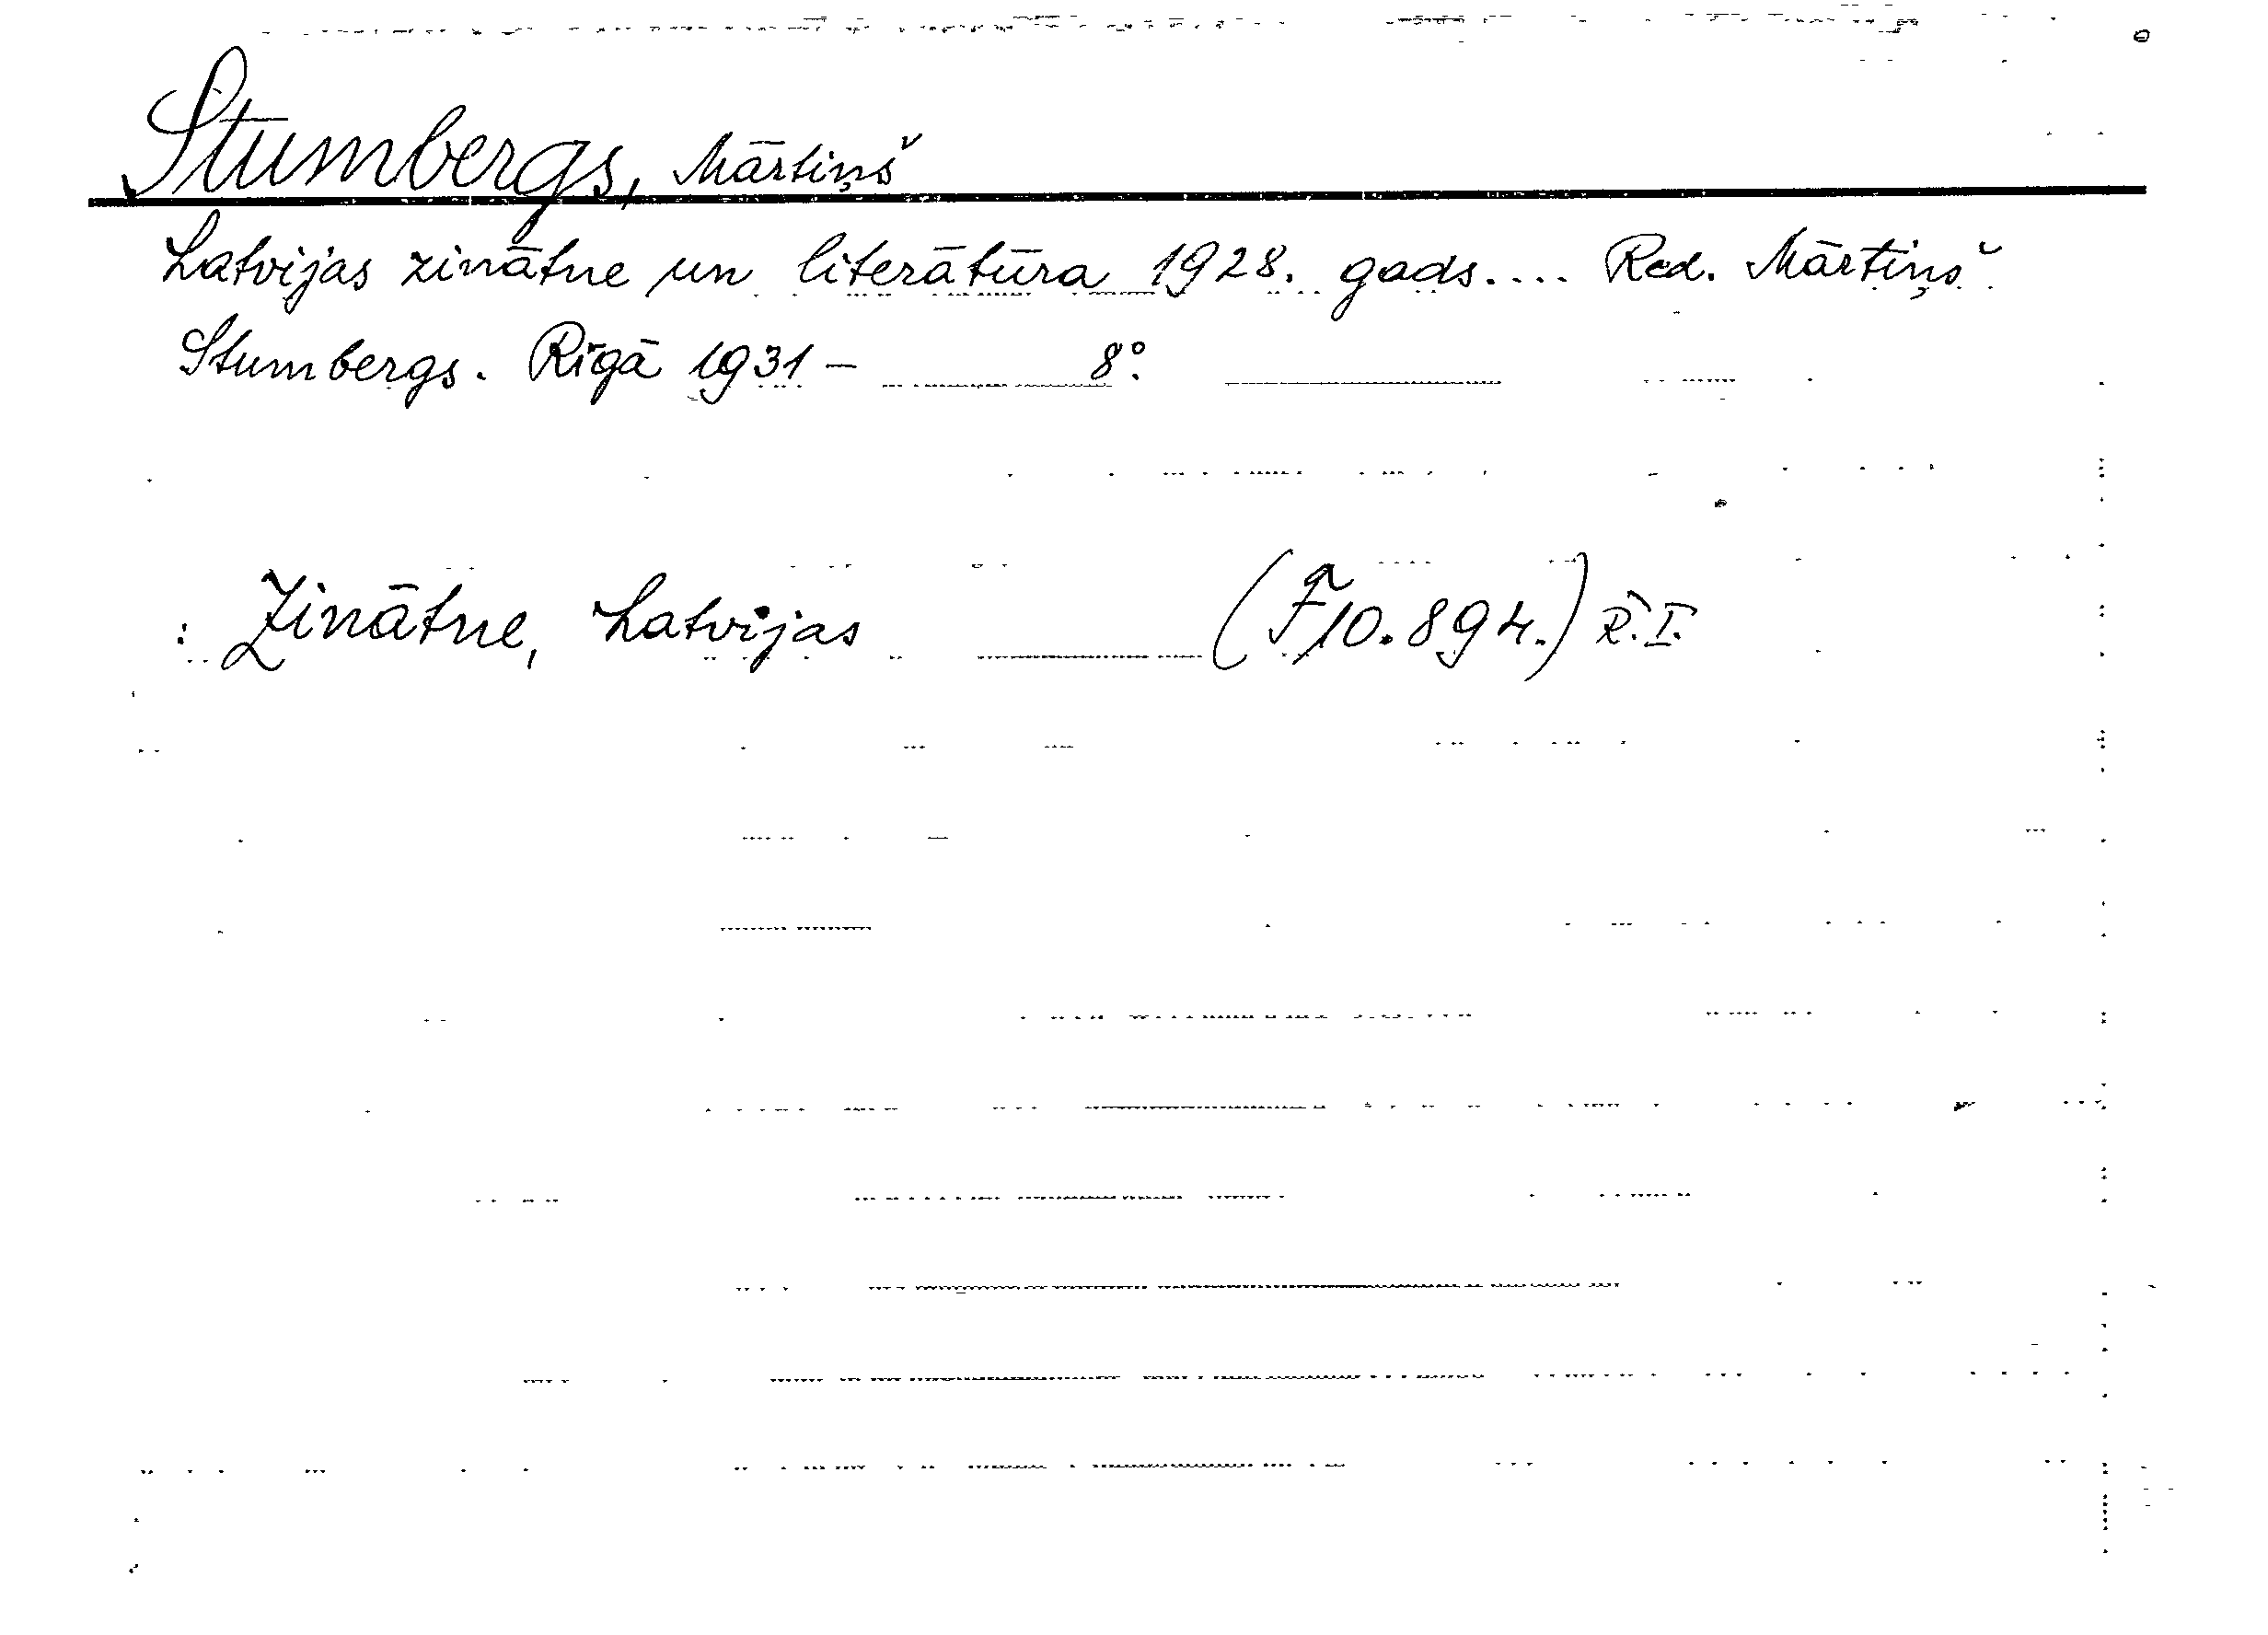 Stumbergs, Mārtiņš
Latvijas zinātne un literātūra 1928. gads.... Red. Mārtiņš
Stumbergs. Rīgā 1931 – 8°.
: Zinātne, Latvijas (F10.894.) R.I.